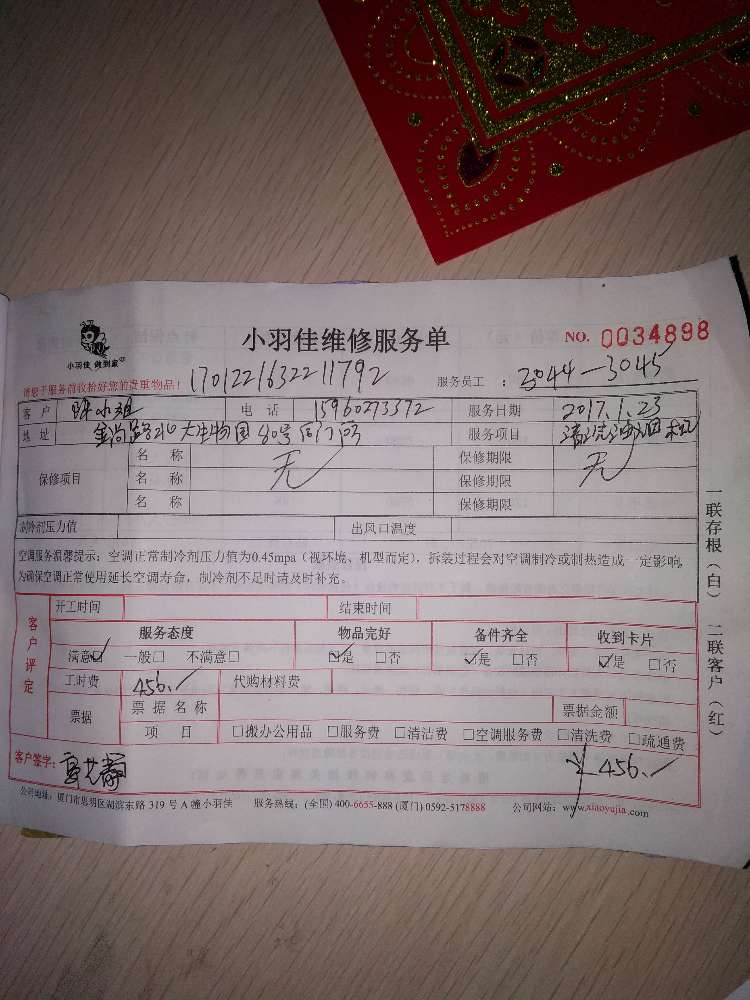 小羽佳 做到家
小羽佳维修服务单
NO. 0034898
请您于服务前收拾好您的贵重物品! 1701221632211792 服务员工: 3044-3045
客户 电话 15960273372 服务日期 2017.1.23
地址 服务项目 清洗油烟机
保修项目 名称 无 保修期限 无
名称 保修期限
名称 保修期限
制冷剂压力值 出风口温度
空调服务温馨提示: 空调正常制冷剂压力值为0.45mpa(视环境、机型而定), 拆装过程会对空调制冷或制热造成一定影响,
为确保空调正常使用延长空调寿命, 制冷剂不足时请及时补充。
客户评定
开工时间 结束时间
服务态度 物品完好 备件齐全 收到卡片
满意☑ 一般□ 不满意□ ☑是 □否 ☑是 □否 ☑是 □否
工时费 456.- 代购材料费
票据 票据名称 票据金额
项目 □搬办公用品 □服务费 □清洁费 □空调服务费 □清洗费 □疏通费
客户签字: ¥456.-
公司地址: 厦门市思明区湖滨东路 319 号 A 幢小羽佳 服务热线: (全国) 400-6655-888 (厦门) 0592-5178888 公司网站: www.xiaoyujia.com
一联存根(白) 二联客户(红)